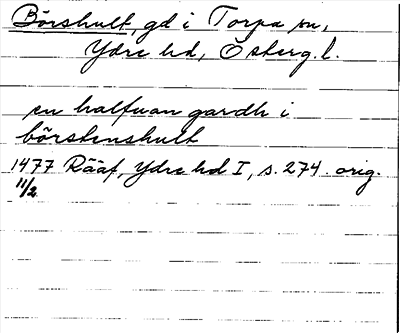 Börshult, gd i Torpa sn,
Ydre hd, Österg.l.
en halfuan gardh i
börstenshult
1477 Rääf, Ydre hd I, s. 274. orig.
11/2